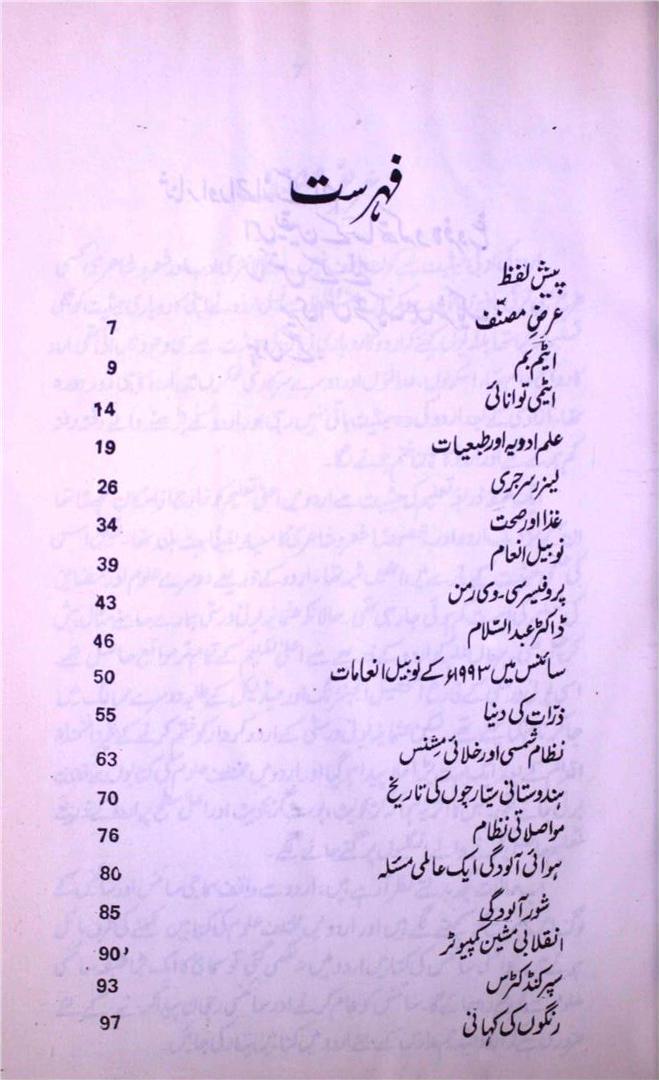 فہرست
پیش لفظ
عرضِ مصنّف 7
ایٹم بم 9
ایٹمی توانائی 14
علم ادویہ اور طبعیات 19
لیزر سرجری 26
غذا اور صحت 34
نوبیل انعام 39
پروفیسر سی۔ وی رمن 43
ڈاکٹر عبد السّلام 46
سائنس میں ۱۹۹۳ء کے نوبیل انعامات 50
ذرّات کی دنیا 55
نظام شمسی اور خلائی مشنس 63
ہندوستانی سیّارچوں کی تاریخ 70
مواصلاتی نظام 76
ہوائی آلودگی ایک عالمی مسئلہ 80
شور آلودگی 85
انقلابی مشین کمپیوٹر 90
سپر کنڈکٹرس 93
رنگوں کی کہانی 97